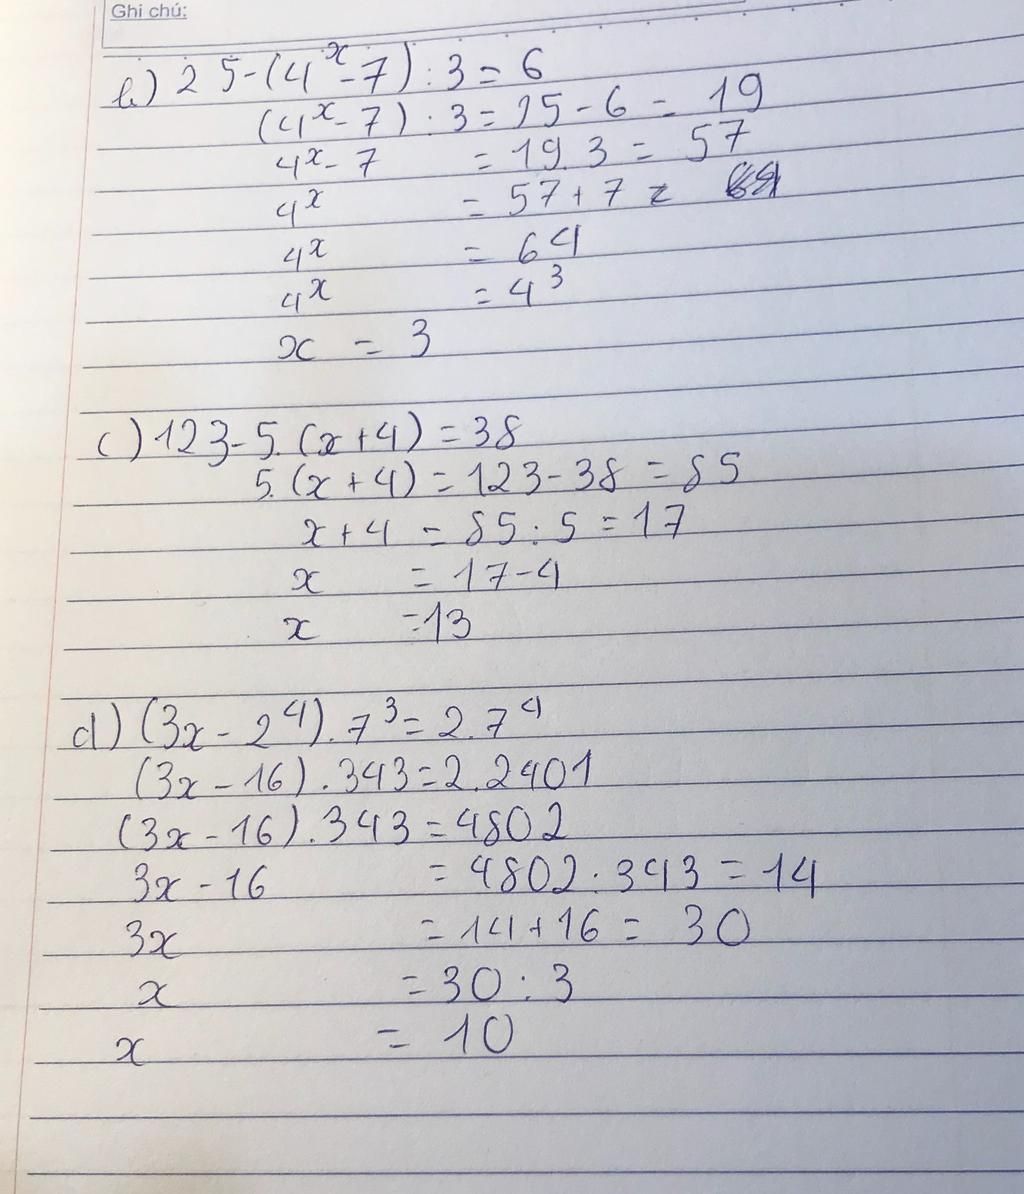 Ghi chú:
b) 25-(4^x-7):3=6
(4^x-7):3=25-6=19
4^x-7 =19.3=57
4^x =57+7=
4^x =64
4^x =4^3
x = 3
c) 123-5.(x+4)=38
5.(x+4)=123-38=85
x+4 =85:5=17
x =17-4
x =13
d) (3x-2^4).7^3=2.7^4
(3x-16).343=2.2401
(3x-16).343=4802
3x-16 =4802:343=14
3x =14+16=30
x =30:3
x = 10